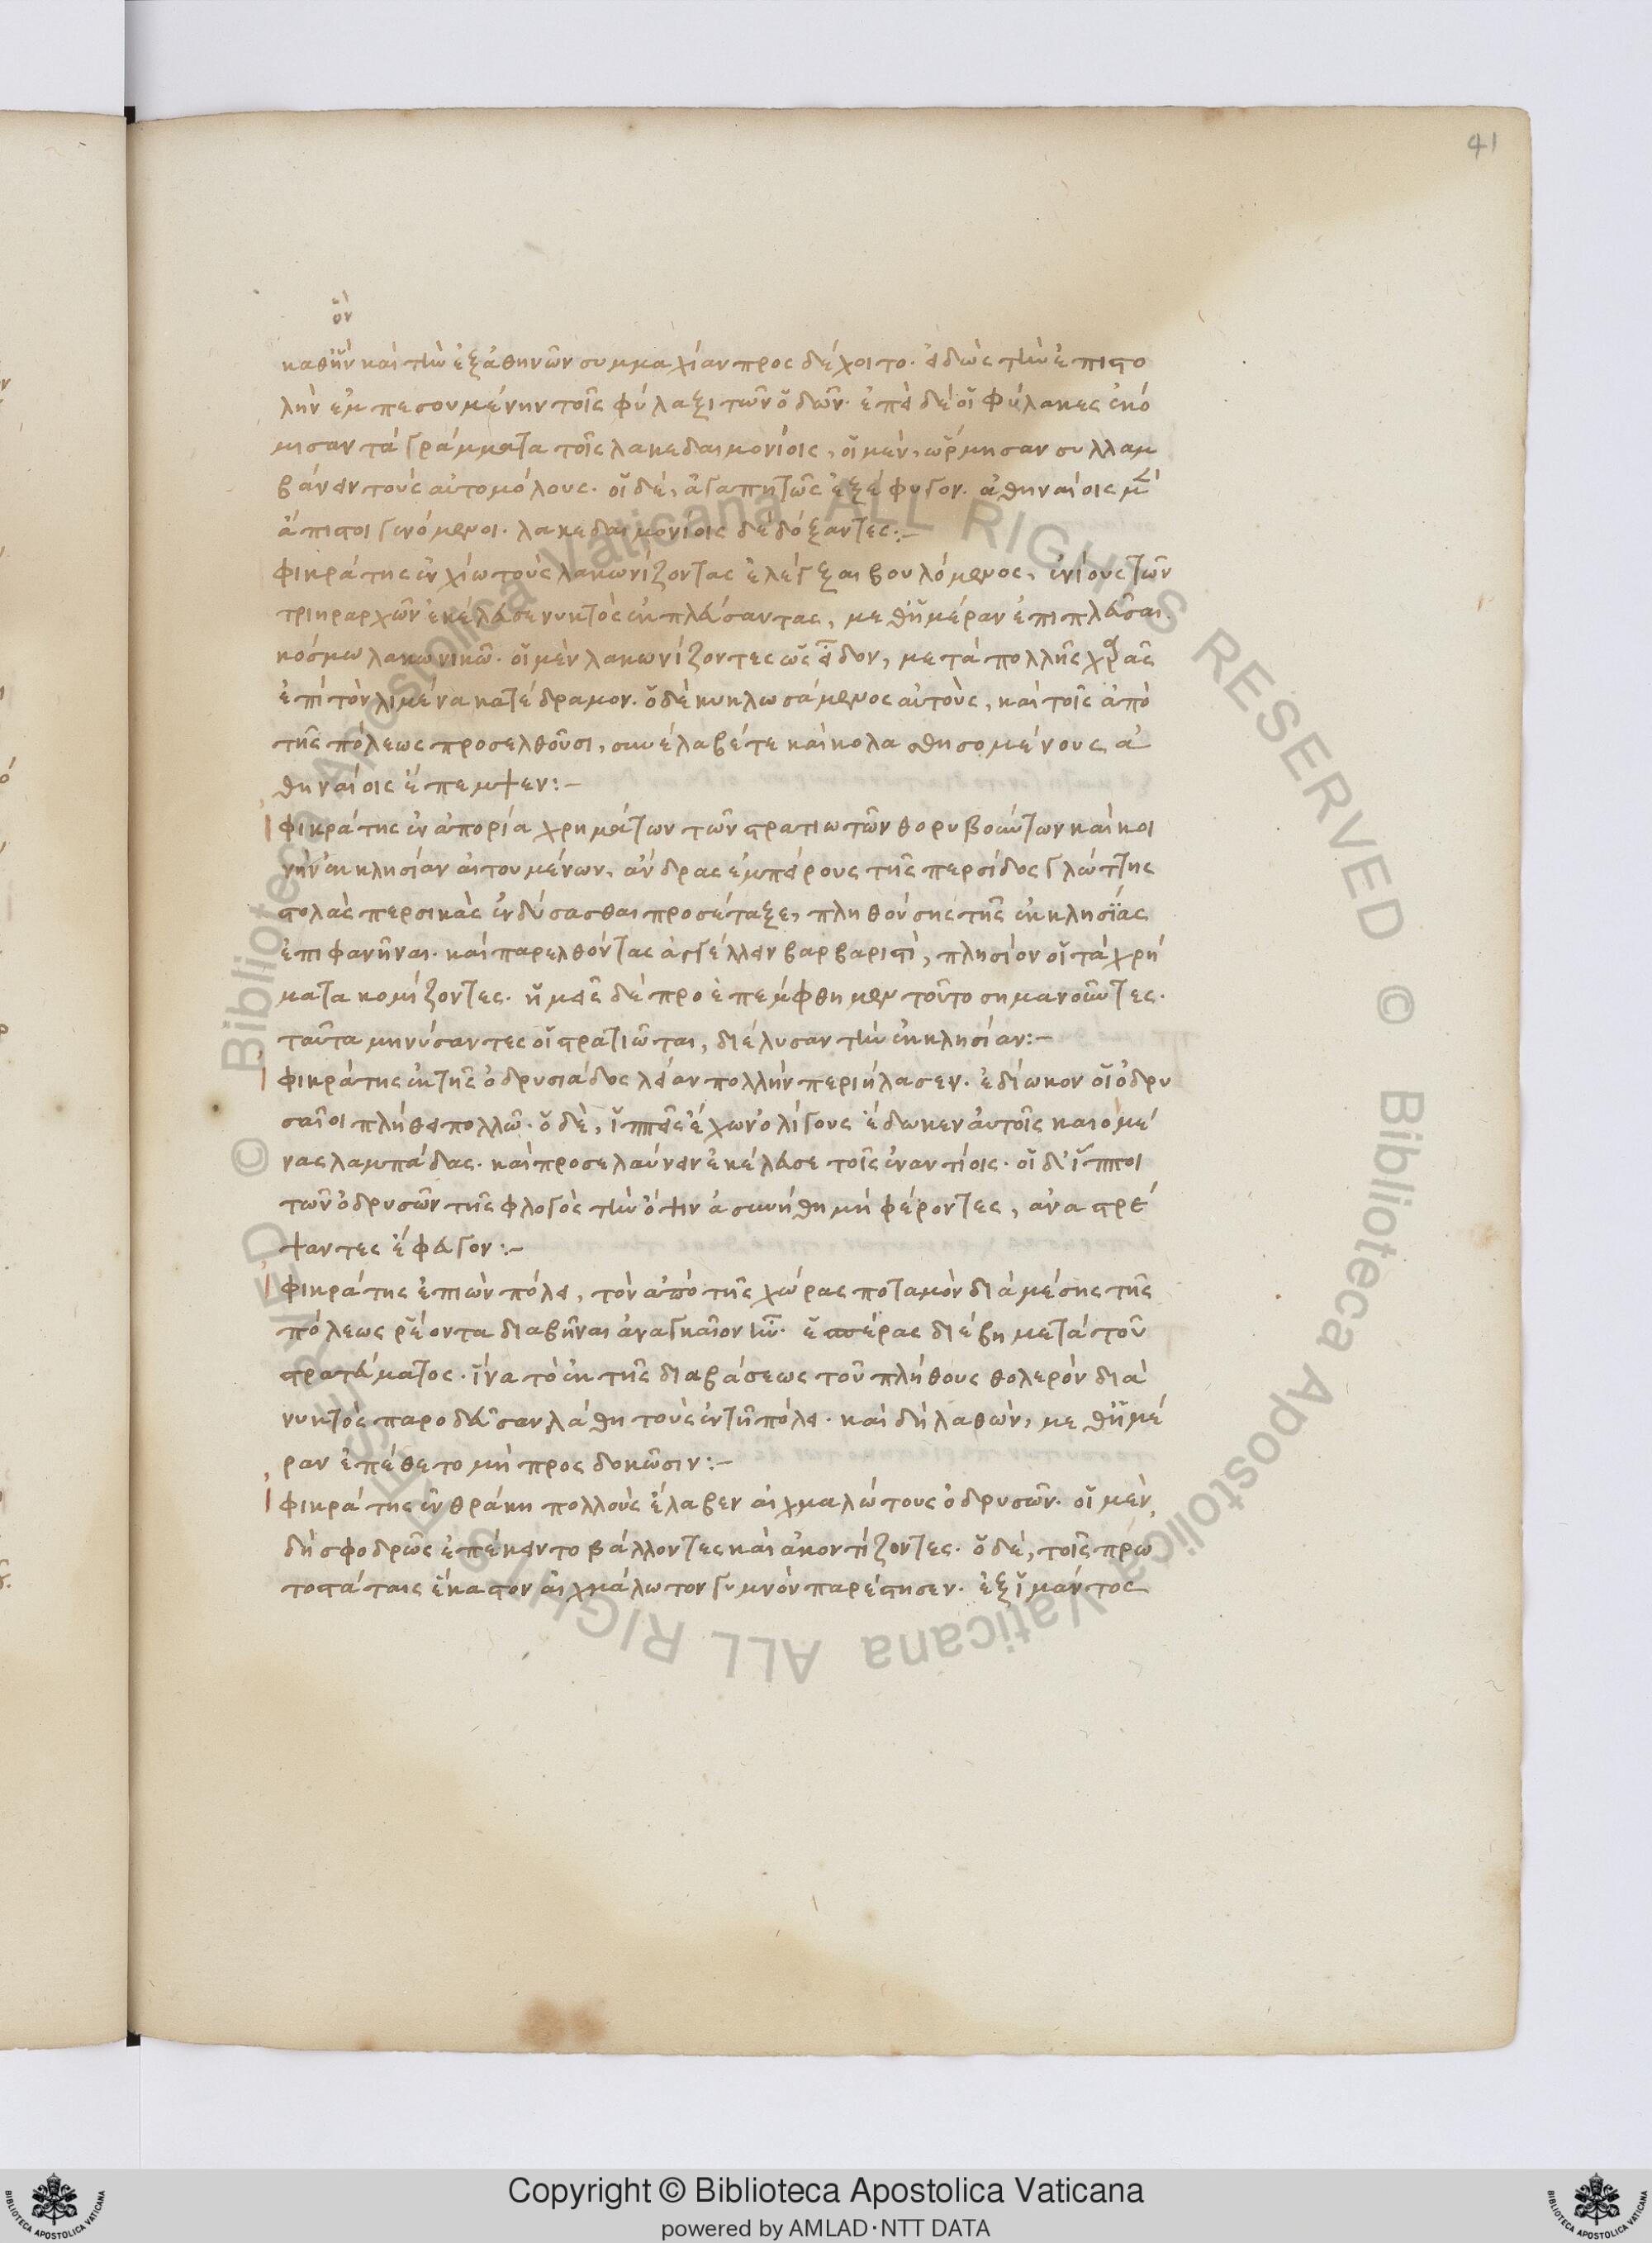 41
ὃν
καθ' ἣν καὶ τὴν ἐξ ἀθηνῶν συμμαχίαν προσδέχοιτο. εἰδὼς τὴν ἐπιστο
λὴν ἐμπεσουμένην τοῖς φύλαξι τῶν ὁδῶν. ἐπεὶ δὲ οἱ φύλακες ἐκό
μισαν τὰ γράμματα τοῖς λακεδαιμονίοις, οἱ μὲν, ὥρμησαν συλλαμ
βάνειν τοὺς αὐτομόλους. οἱ δὲ, ἀγαπητῶς ἐξέφυγον. ἀθηναίοις μὲν
ἄπιστοι γινόμενοι. λακεδαιμονίοις δὲ δόξαντες:-
φικράτης ἐν χίω τοὺς λακωνίζοντας ἐλέγξαι βουλόμενος, ἐνίους τῶν
τριηραρχῶν ἐκέλευσε νυκτὸς ἐκπλεύσαντας, μεθ' ἡμέραν ἐπιπλεῦσαι
κόσμω λακωνικῶ. οἱ μὲν λακωνίζοντες ὡς εἶδον, μετὰ πολλῆς χαρᾶς
ἐπὶ τὸν λιμένα κατέδραμον. ὁ δὲ κυκλωσάμενος αὐτοὺς, καὶ τοῖς ἀπὸ
τῆς πόλεως προσελθοῦσι, συνέλαβέ τε καὶ κολασθησομένους ἀ
θηναίοις ἔπεμψεν:-
φικράτης ἐν ἀπορία χρημάτων τῶν στρατιωτῶν θορυβούντων καὶ κοι
νὴν ἐκκλησίαν αἰτουμένων, ἄνδρας ἐμπείρους τῆς περσίδος γλώττης
στολὰς περσικὰς ἐνδύσασθαι προσέταξε, πληθούσης τῆς ἐκκλησίας
ἐπιφανῆναι. καὶ παρελθόντας ἀγγέλλειν βαρβαριστὶ, πλησίον οἱ τὰ χρή
ματα κομίζοντες. ἡμεῖς δὲ προεπέμφθημεν τοῦτο σημανοῦντες.
ταῦτα μηνύσαντες οἱ στρατιῶται, διέλυσαν τὴν ἐκκλησίαν:-
φικράτης ἐκ τῆς ὀδρυσιάδος λείαν πολλὴν περιήλασεν. ἐδίωκον οἱ ὀδρυ
σαῖοι πλήθει πολλῶ. ὁ δὲ, ἱππεῖς ἔχων ὀλίγους ἔδωκεν αὐτοῖς καιομέ
νας λαμπάδας. καὶ προσελαύνειν ἐκέλευσε τοῖς ἐναντίοις. οἱ δ' ἵπποι
τῶν ὀδρυσῶν τῆς φλογὸς τὴν ὄψιν ἀσυνήθη μὴ φέροντες, ἀναστρέ
ψαντες ἔφευγον:-
φικράτης ἐπιὼν πόλει, τὸν ἀπὸ τῆς χώρας ποταμὸν διὰ μέσης τῆς
πόλεως ῥέοντα διαβῆναι ἀναγκαῖον ἦν. ἑσπέρας διέβη μετὰ τοῦ
στρατεύματος. ἵνα τὸ ἐκ τῆς διαβάσεως τοῦ πλήθους θολερὸν διὰ
νυκτὸς παροδεῦσαν λάθη τοὺς ἐν τῆ πόλει. καὶ δὴ λαθὼν, μεθ' ἡμέ
ραν ἐπέθετο μὴ προσδοκῶσιν:-
φικράτης ἐν θράκη πολλοὺς ἔλαβεν αἰχμαλώτους ὀδρυσῶν. οἱ μὲν
δὴ σφοδρῶς ἐπέκειντο βάλλοντες καὶ ἀκοντίζοντες. ὁ δὲ, τοῖς πρω
τοστάταις ἕκαστον αἰχμάλωτον γυμνὸν παρέστησεν. ἐξ ἱμάντος
Copyright © Biblioteca Apostolica Vaticana
powered by AMLAD·NTT DATA